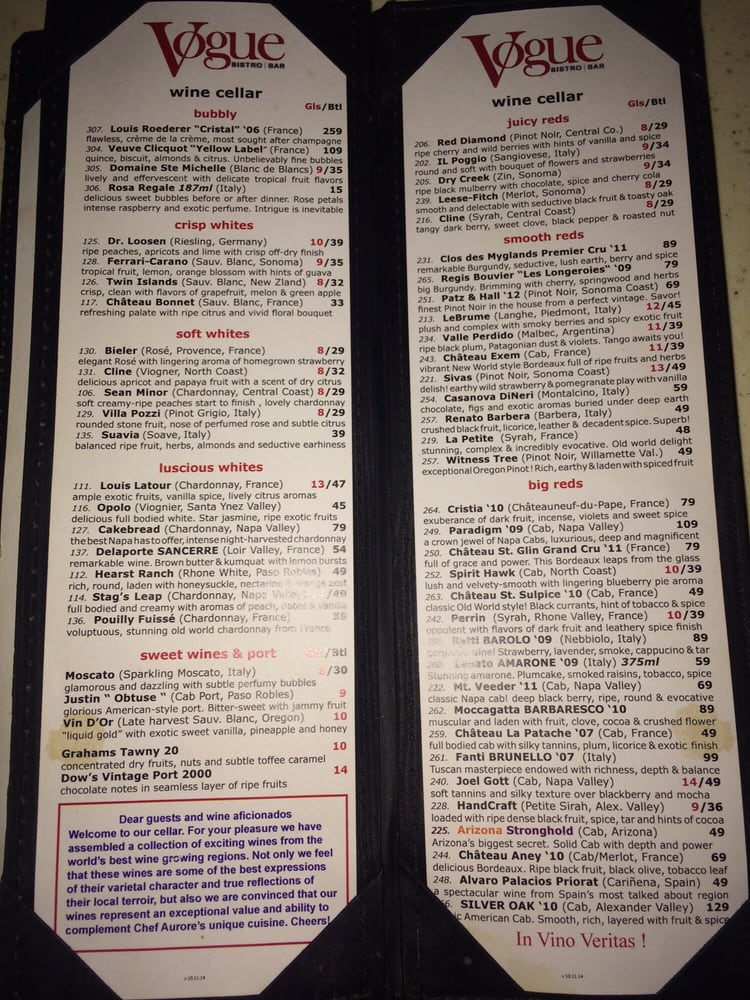 Vogue
BISTRO | BAR
wine cellar
Gls/Btl
bubbly
307. Louis Roederer "Cristal" '06 (France) 259
flawless, crème de la crème, most sought after champagne
304. Veuve Clicquot "Yellow Label" (France) 109
quince, biscuit, almonds & citrus. Unbelievably fine bubbles
305. Domaine Ste Michelle (Blanc de Blancs) 9/35
lively and effervescent with delicate tropical fruit flavors
306. Rosa Regale 187ml (Italy) 15
delicious sweet bubbles before or after dinner. Rose petals
intense raspberry and exotic perfume. Intrigue is inevitable
crisp whites
125. Dr. Loosen (Riesling, Germany) 10/39
ripe peaches, apricots and lime with crisp off-dry finish
128. Ferrari-Carano (Sauv. Blanc, Sonoma) 9/35
tropical fruit, lemon, orange blossom with hints of guava
126. Twin Islands (Sauv. Blanc, New Zland) 8/32
crisp, clean with flavors of grapefruit, melon & green apple
117. Château Bonnet (Sauv. Blanc, France) 33
refreshing palate with ripe citrus and vivid floral bouquet
soft whites
130. Bieler (Rosé, Provence, France) 8/29
elegant Rosé with lingering aroma of homegrown strawberry
131. Cline (Viogner, North Coast) 8/32
delicious apricot and papaya fruit with a scent of dry citrus
106. Sean Minor (Chardonnay, Central Coast) 8/29
soft creamy-ripe peaches start to finish , lovely chardonnay
129. Villa Pozzi (Pinot Grigio, Italy) 8/29
rounded stone fruit, nose of perfumed rose and subtle citrus
135. Suavia (Soave, Italy) 39
balanced ripe fruit, herbs, almonds and seductive earhiness
luscious whites
111. Louis Latour (Chardonnay, France) 13/47
ample exotic fruits, vanilla spice, lively citrus aromas
116. Opolo (Viognier, Santa Ynez Valley) 45
delicious full bodied white. Star jasmine, ripe exotic fruits
127. Cakebread (Chardonnay, Napa Valley) 79
the best Napa has to offer, intense night-harvested chardonnay
137. Delaporte SANCERRE (Loir Valley, France) 54
remarkable wine. Brown butter & kumquat with lemon bursts
112. Hearst Ranch (Rhone White, Paso Robles) 49
rich, round, laden with honeysuckle, nectarine & orange zest
114. Stag's Leap (Chardonnay, Napa Valley) /49
full bodied and creamy with aromas of peach, dates & vanilla
136. Pouilly Fuissé (Chardonnay, France) 59
voluptuous, stunning old world chardonnay from France
sweet wines & port Gls/Btl
Moscato (Sparkling Moscato, Italy) /30
glamorous and dazzling with subtle perfumy bubbles
Justin " Obtuse " (Cab Port, Paso Robles) 9
glorious American-style port. Bitter-sweet with jammy fruit
Vin D'Or (Late harvest Sauv. Blanc, Oregon) 10
"liquid gold" with exotic sweet vanilla, pineapple and honey
Grahams Tawny 20 10
concentrated dry fruits, nuts and subtle toffee caramel
Dow's Vintage Port 2000 14
chocolate notes in seamless layer of ripe fruits
Dear guests and wine aficionados
Welcome to our cellar. For your pleasure we have
assembled a collection of exciting wines from the
world's best wine growing regions. Not only we feel
that these wines are some of the best expressions
of their varietal character and true reflections of
their local terroir, but also we are convinced that our
wines represent an exceptional value and ability to
complement Chef Aurore's unique cuisine. Cheers!
v 10.11.14
Vogue
BISTRO | BAR
wine cellar
Gls/Btl
juicy reds
206. Red Diamond (Pinot Noir, Central Co.) 8/29
ripe cherry and wild berries with hints of vanilla and spice
202. IL Poggio (Sangiovese, Italy) 9/34
round and soft with bouquet of flowers and strawberries
205. Dry Creek (Zin, Sonoma) 9/34
ripe black mulberry with chocolate, spice and cherry cola
239. Leese-Fitch (Merlot, Sonoma) 8/29
smooth and delectable with seductive black fruit & toasty oak
216. Cline (Syrah, Central Coast) 8/29
tangy dark berry, sweet clove, black pepper & roasted nut
smooth reds
231. Clos des Myglands Premier Cru '11 89
remarkable Burgundy, seductive, lush earth, berry and spice
265. Regis Bouvier "Les Longeroies" '09 79
big Burgundy. Brimming with cherry, springwood and herbs
251. Patz & Hall '12 (Pinot Noir, Sonoma Coast) 69
finest Pinot Noir in the house from a perfect vintage. Savor!
213. LeBrume (Langhe, Piedmont, Italy) 12/45
plush and complex with smoky berries and spicy exotic fruit
234. Valle Perdido (Malbec, Argentina) 11/39
ripe black plum, Patagonian dust & violets. Tango awaits you!
243. Château Exem (Cab, France) 11/39
vibrant New World style Bordeaux full of ripe fruits and herbs
221. Sivas (Pinot Noir, Sonoma Coast) 13/49
delish! earthy wild strawberry & pomegranate play with vanilla
254. Casanova DiNeri (Montalcino, Italy) 59
chocolate, figs and exotic aromas buried under deep earth
257. Renato Barbera (Barbera, Italy) 49
crushed black fruit, licorice, leather & decadent spice. Superb!
219. La Petite (Syrah, France) 48
stunning, complex & incredibly evocative. Old world delight
257. Witness Tree (Pinot Noir, Willamette Val.) 49
exceptional Oregon Pinot! Rich, earthy & laden with spiced fruit
big reds
264. Cristia '10 (Châteauneuf-du-Pape, France) 79
exuberance of dark fruit, incense, violets and sweet spice
249. Paradigm '09 (Cab, Napa Valley) 109
a crown jewel of Napa Cabs, luxurious, deep and magnificent
250. Château St. Glin Grand Cru '11 (France) 79
full of grace and power. This Bordeaux leaps from the glass
252. Spirit Hawk (Cab, North Coast) 10/39
lush and velvety-smooth with lingering blueberry pie aroma
263. Château St. Sulpice '10 (Cab, France) 49
classic Old World style! Black currants, hint of tobacco & spice
242. Perrin (Syrah, Rhone Valley, France) 10/39
oppulent with flavors of dark fruit and leathery spice finish
Ratti BAROLO '09 (Nebbiolo, Italy) 89
wine! Strawberry, lavender, smoke, cappucino & tar
260. Renato AMARONE '09 (Italy) 375ml 59
Stunning amarone. Plumcake, smoked raisins, tobacco, spice
222. Mt. Veeder '11 (Cab, Napa Valley) 69
classic Napa cab! deep black berry, ripe, round & evocative
262. Moccagatta BARBARESCO '10 89
muscular and laden with fruit, clove, cocoa & crushed flower
259. Château La Patache '07 (Cab, France) 49
full bodied cab with silky tannins, plum, licorice & exotic finish
261. Fanti BRUNELLO '07 (Italy) 99
Tuscan masterpiece endowed with richness, depth & balance
240. Joel Gott (Cab, Napa Valley) 14/49
soft tannins and silky texture over blackberry and mocha
228. HandCraft (Petite Sirah, Alex. Valley) 9/36
loaded with ripe dense black fruit, spice, tar and hints of cocoa
225. Arizona Stronghold (Cab, Arizona) 49
Arizona's biggest secret. Solid Cab with depth and power
244. Château Aney '10 (Cab/Merlot, France) 69
delicious Bordeaux. Ripe black fruit, black olive, tobacco leaf
248. Alvaro Palacios Priorat (Cariñena, Spain) 49
a spectacular wine from Spain's most talked about region
66. SILVER OAK '10 (Cab, Alexander Valley) 129
ic American Cab. Smooth, rich, layered with fruit & spice
In Vino Veritas !
v 10.11.14